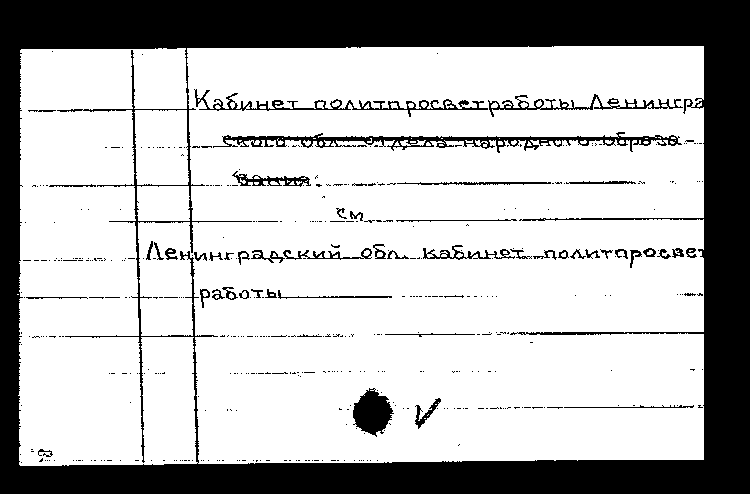 Кабинет политпросветработы Ленингра
ского обл. отдела народного образо-
вания.
см
Ленинградский обл. кабинет политпросвет
работы